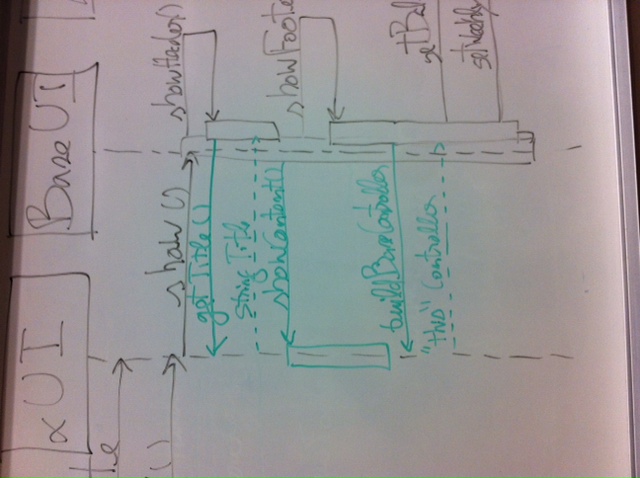 ∝ UI
Base UI
te
()
show ()
showHeader()
getTitle()
string Title
showContent()
showFoote
buildBaseController
"this" Controller
setBal
setWeekly